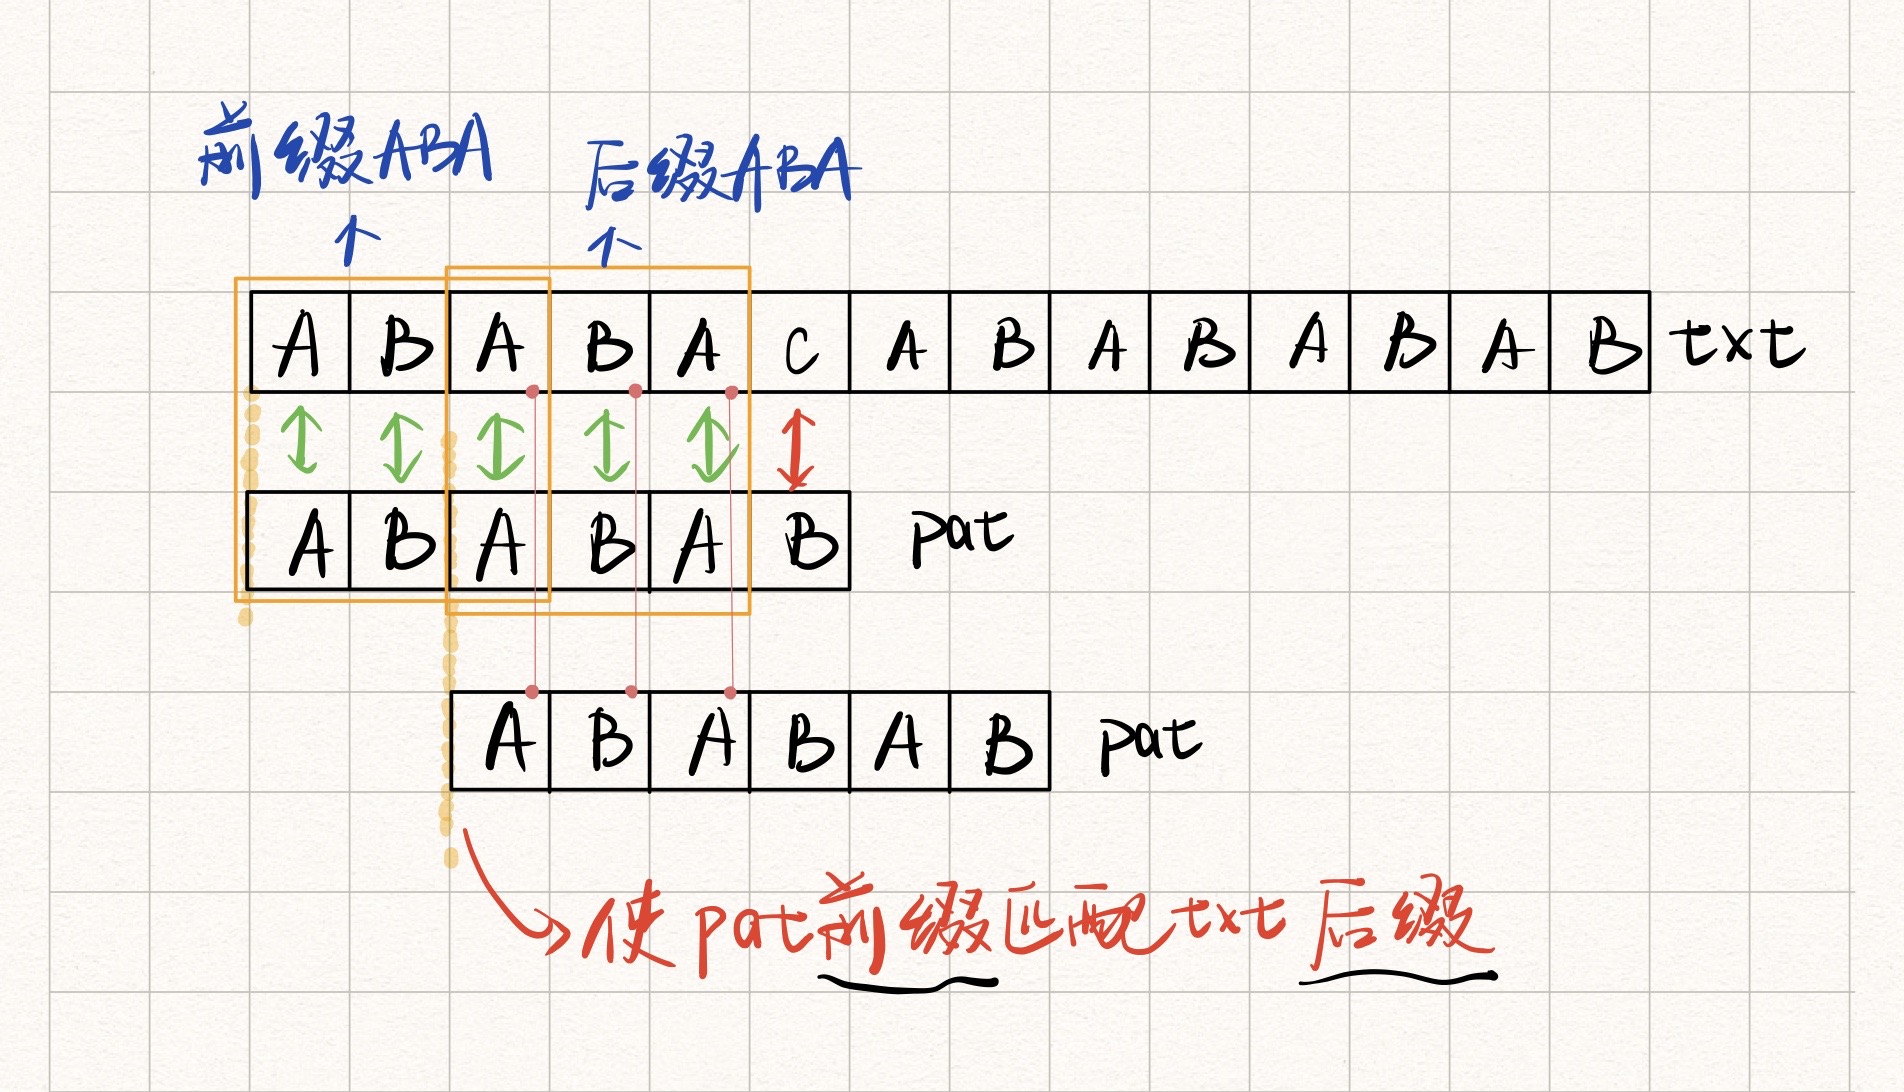 前缀ABA 后缀ABA
A B A B A C A B A B A B A B txt
A B A B A B pat
A B A B A B pat
使pat前缀匹配txt后缀